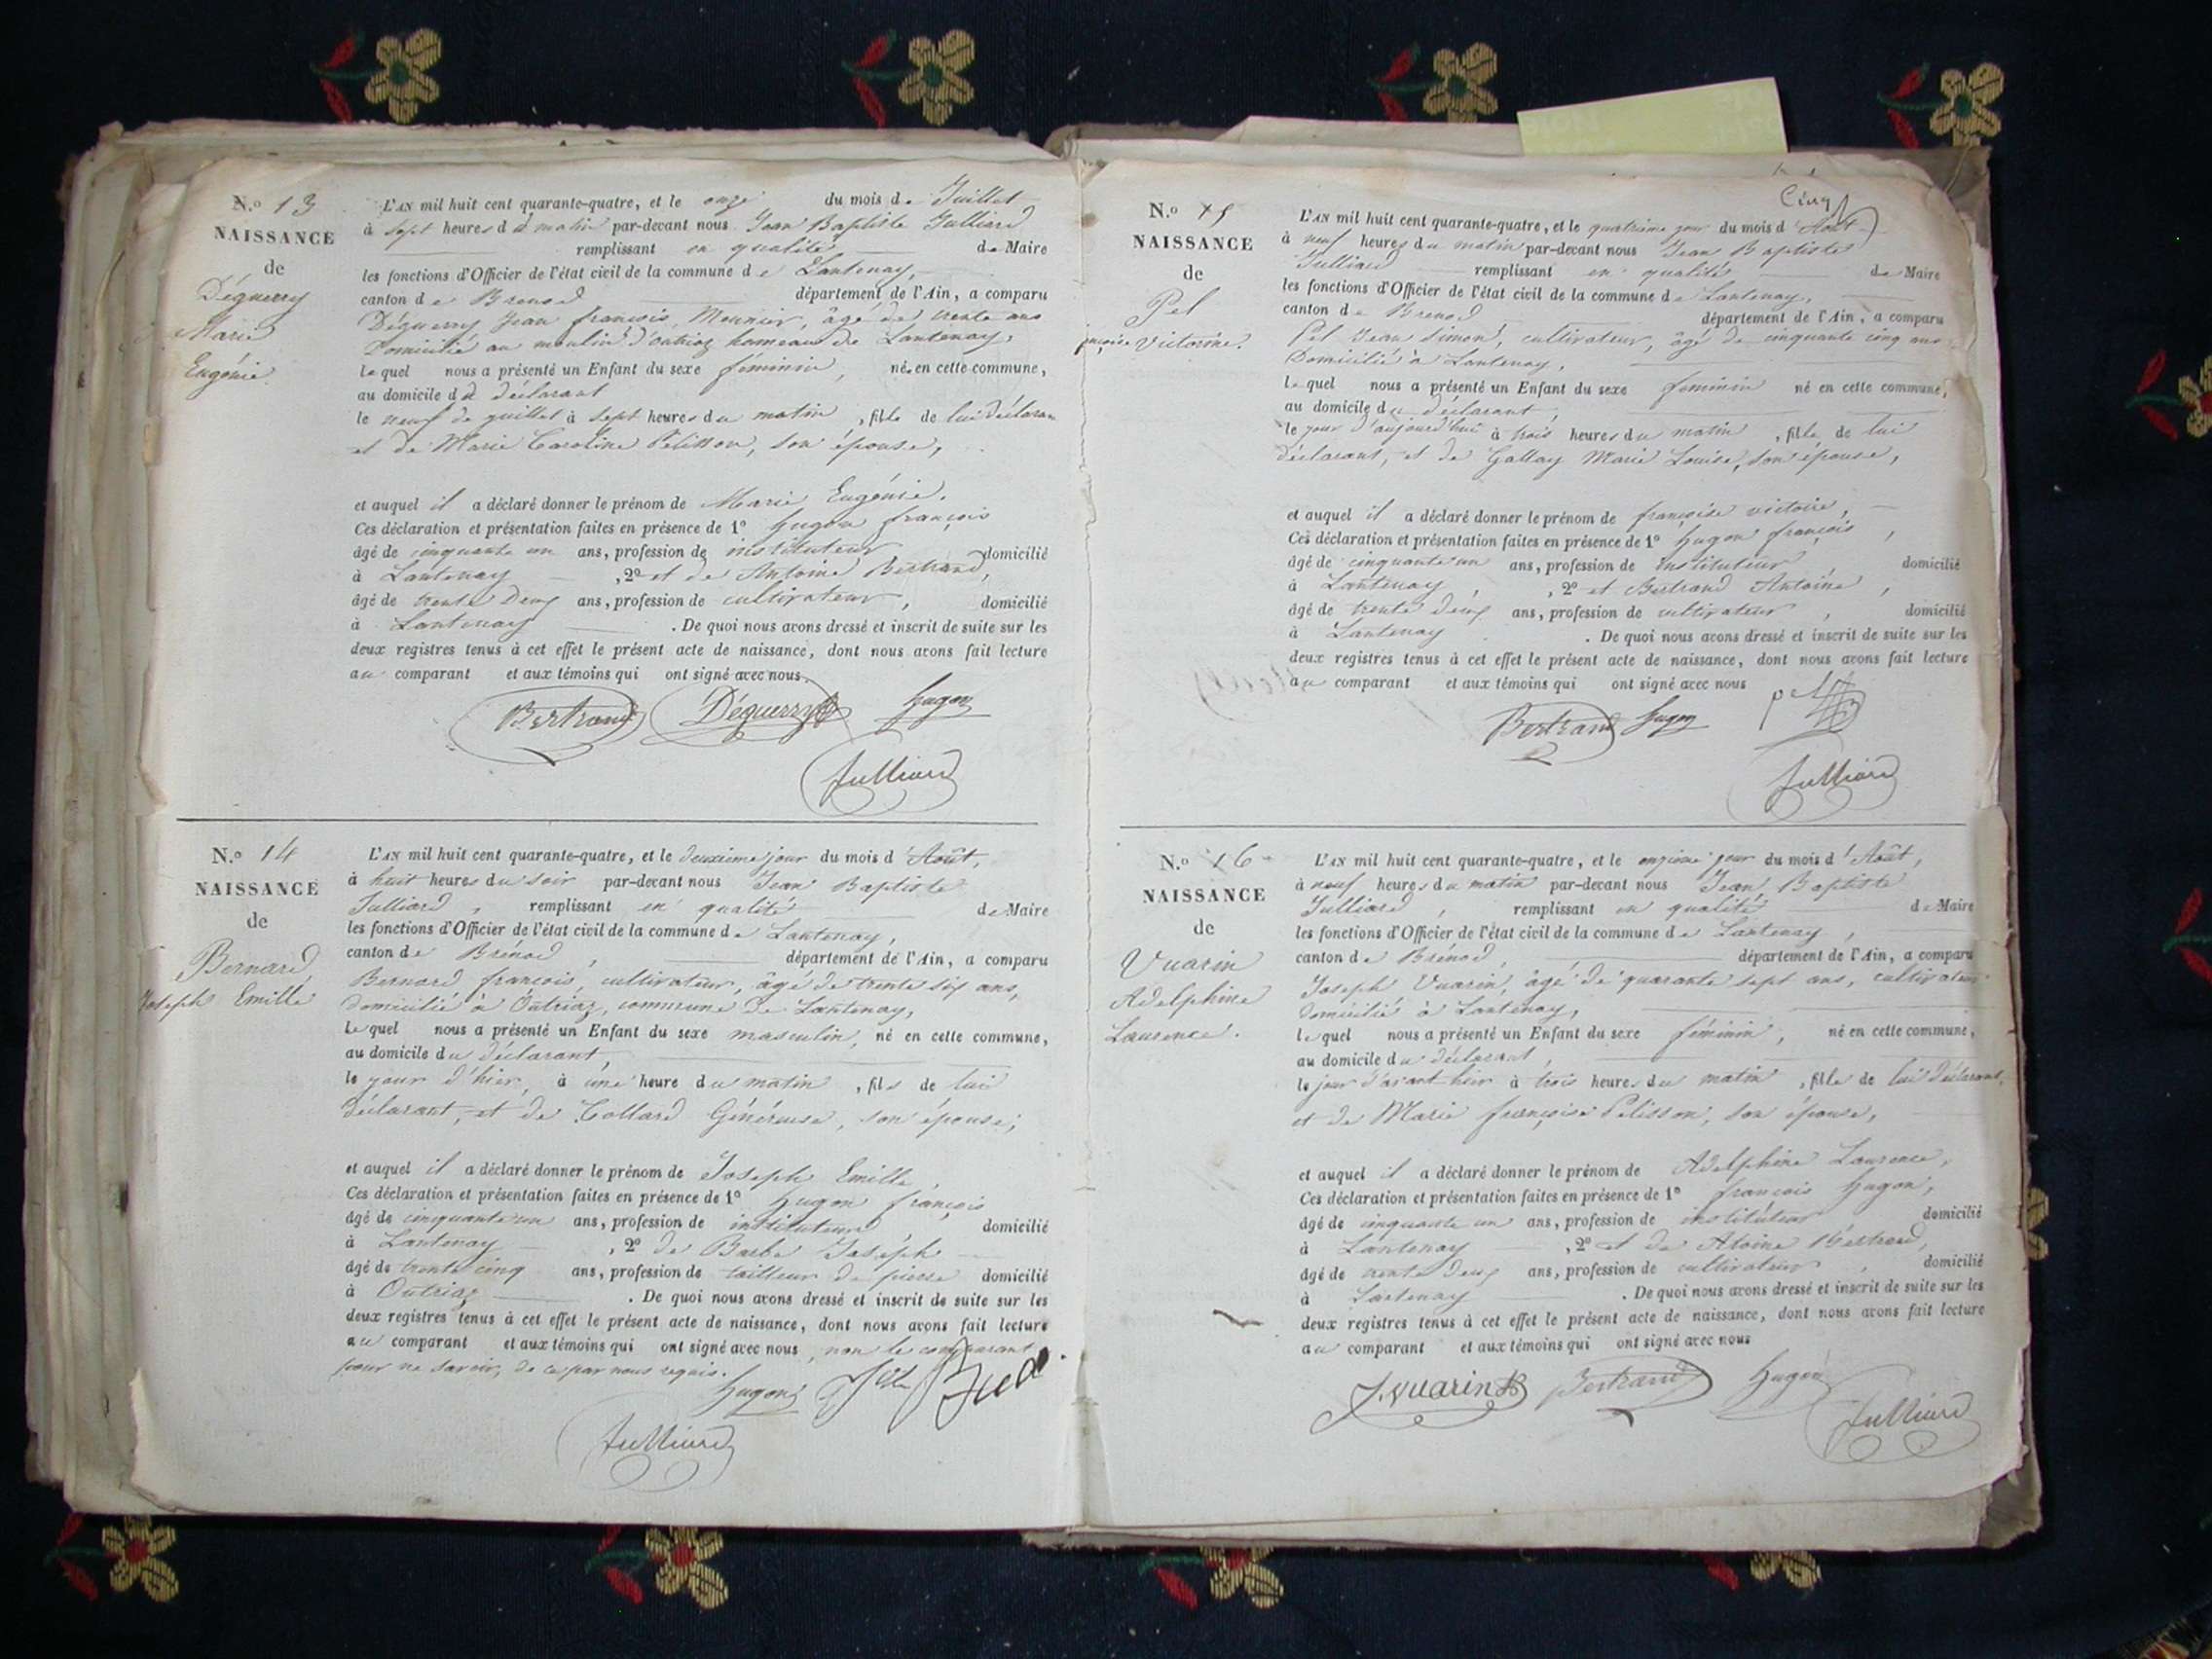 N.o 13
NAISSANCE
de
Déguerry
Marie
Eugénie.
L'AN mil huit cent quarante-quatre, et le onze du mois de Juillet
à sept heures du matin par-devant nous Jean Baptiste Julliard
remplissant en qualité de Maire
les fonctions d'Officier de l'état civil de la commune de Lantenay,
canton de Brenod département de l'Ain, a comparu
Déguerry Jean françois, Meunier, âgé de trente ans
Domicilié au moulin d'outriaz hameau de Lantenay,
lequel nous a présenté un Enfant du sexe féminin, née en cette commune,
au domicile du déclarant
le neuf de juillet à sept heures du matin, fille de lui déclaran
et de Marie Caroline Pelisson, son épouse,
et auquel il a déclaré donner le prénom de Marie Eugénie.
Ces déclaration et présentation faites en présence de 1o hugon françois
âgé de cinquante un ans, profession de instituteur domicilié
à Lantenay, 2o et de Antoine Bertrand,
âgé de trente Deux ans, profession de cultivateur, domicilié
à Lantenay. De quoi nous avons dressé et inscrit de suite sur les
deux registres tenus à cet effet le présent acte de naissance, dont nous avons fait lecture
au comparant et aux témoins qui ont signé avec nous.
Bertrand Déguerry hugon
Julliard
N.o 14
NAISSANCE
de
Bernard
Joseph Emille
L'AN mil huit cent quarante-quatre, et le deuxième jour du mois d'Août,
à huit heures du soir par-devant nous Jean Baptiste
Julliard, remplissant en qualité de Maire
les fonctions d'Officier de l'état civil de la commune de Lantenay,
canton de Brénod, département de l'Ain, a comparu
Bernard françois, cultivateur, âgé de trente six ans,
domicilié à Outriaz, commune de Lantenay,
lequel nous a présenté un Enfant du sexe masculin, né en cette commune,
au domicile du déclarant,
le jour d'hier, à une heure du matin, fils de lui
déclarant, et de Collard Généreuse, son épouse;
et auquel il a déclaré donner le prénom de Joseph Emille
Ces déclaration et présentation faites en présence de 1o hugon françois
âgé de cinquante un ans, profession de instituteur domicilié
à Lantenay, 2o de Barbe Joseph
âgé de trente cinq ans, profession de tailleur de pierre domicilié
à Outriaz. De quoi nous avons dressé et inscrit de suite sur les
deux registres tenus à cet effet le présent acte de naissance, dont nous avons fait lecture
au comparant et aux témoins qui ont signé avec nous, non le comparant
pour ne savoir, de ce par nous requis.
hugon
Julliard
Cinq
N.o 15
NAISSANCE
de
Pel
victorine.
L'AN mil huit cent quarante-quatre, et le quatrième jour du mois d'Août
à neuf heures du matin par-devant nous Jean Baptiste
Julliard remplissant en qualité de Maire
les fonctions d'Officier de l'état civil de la commune de Lantenay,
canton de Brenod département de l'Ain, a comparu
Pel Jean Simon, cultivateur, âgé de cinquante cinq ans
Domicilié à Lantenay,
lequel nous a présenté un Enfant du sexe féminin né en cette commune,
au domicile du déclarant,
le jour d'aujourd'hui à trois heures du matin, fille de lui
déclarant, et de Gallay Marie Louise, son épouse,
et auquel il a déclaré donner le prénom de françoise victoire,
Ces déclaration et présentation faites en présence de 1o hugon françois,
âgé de cinquante un ans, profession de instituteur domicilié
à Lantenay, 2o et Bertrand Antoine,
âgé de trente deux ans, profession de cultivateur, domicilié
à Lantenay. De quoi nous avons dressé et inscrit de suite sur les
deux registres tenus à cet effet le présent acte de naissance, dont nous avons fait lecture
au comparant et aux témoins qui ont signé avec nous
Bertrand hugon pel
Julliard
N.o 16
NAISSANCE
de
Vuarin
Adelphine
Laurence.
L'AN mil huit cent quarante-quatre, et le onzième jour du mois d'Août,
à neuf heures du matin par-devant nous Jean Baptiste
Julliard, remplissant en qualité de Maire
les fonctions d'Officier de l'état civil de la commune de Lantenay,
canton de Brénod, département de l'Ain, a comparu
Joseph Vuarin, âgé de quarante sept ans, cultivateur
domicilié à Lantenay,
lequel nous a présenté un Enfant du sexe féminin, né en cette commune,
au domicile du déclarant,
le jour d'avant hier à trois heures du matin, fille de lui déclarant,
et de Marie françoise Pelisson, son épouse,
et auquel il a déclaré donner le prénom de Adelphine Laurence,
Ces déclaration et présentation faites en présence de 1o françois hugon,
âgé de cinquante un ans, profession de instituteur domicilié
à Lantenay, 2o et de Atoine Bertrand,
âgé de trente deux ans, profession de cultivateur, domicilié
à Lantenay. De quoi nous avons dressé et inscrit de suite sur les
deux registres tenus à cet effet le présent acte de naissance, dont nous avons fait lecture
au comparant et aux témoins qui ont signé avec nous
J. vuarin Bertrand hugon
Julliard